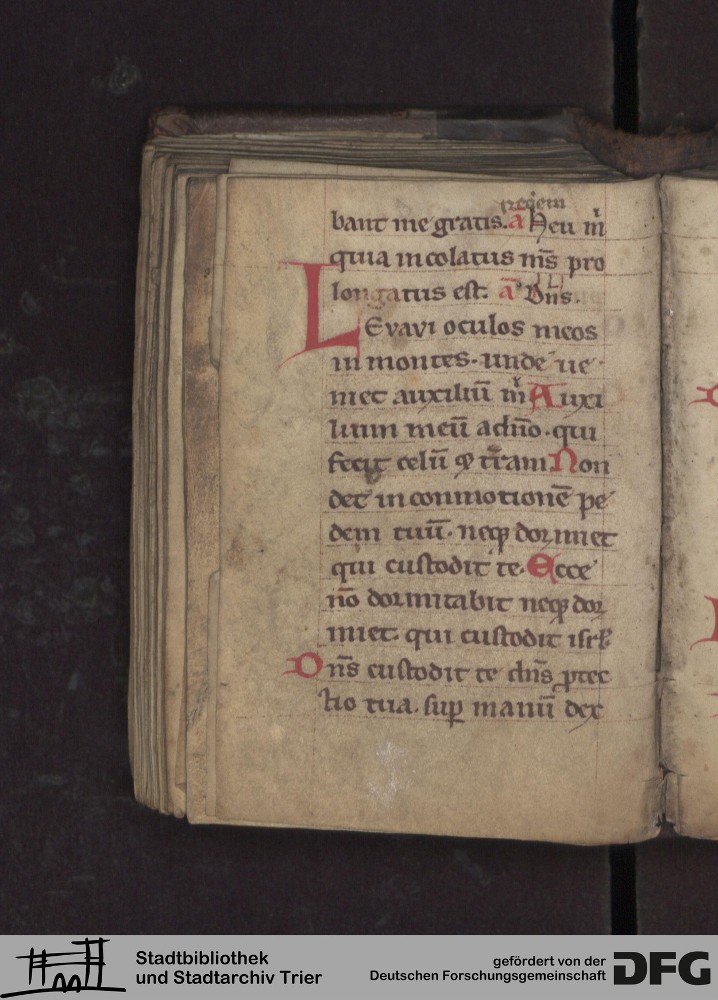 regem
bant me gratis. a̅ Heu m̍
quia incolatus m̅s pro
longatus est. a̅ Dn̅s.
LEvavi oculos meos
in montes. unde ue
niet auxiliu̅ m̍ Auxi
lium meu̅ adn̅o. qui
fecit celu̅ ⁊ tr̅am Non
det in conmotione̅ pe
dem tuu̅. neqꝫ dormiet
qui custodit te. Ecce
n̅o dormitabit neqꝫ dor
miet. qui custodit isrl̅
Dn̅s custodit te dn̅s ꝓtec
tio tua. suꝑ manu̅ dex
Stadtbibliothek
und Stadtarchiv Trier
gefördert von der
Deutschen Forschungsgemeinschaft
DFG